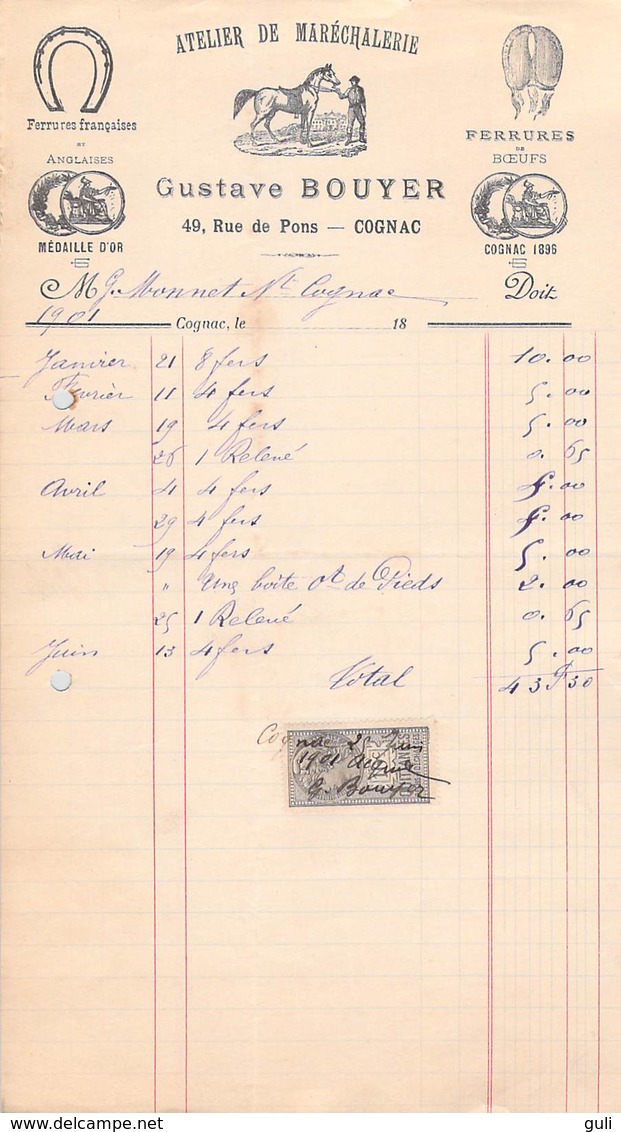 ATELIER DE MARÉCHALERIE
Ferrures françaises
ET
ANGLAISES
FERRURES
DE
BŒUFS
Gustave BOUYER
49, Rue de Pons — COGNAC
MÉDAILLE D'OR
COGNAC 1896
M G. Monnet Nt Cognac Doit
1901
Cognac, le 18
Janvier 21 8 fers 10.00
Février 11 4 fers 5.00
Mars 19 4 fers 5.00
26 1 Relevé 0.65
Avril 4 4 fers 5.00
29 4 fers 5.00
Mai 19 4 fers 5.00
" Une boite Ot de Pieds 2.00
25 1 Relevé 0.65
Juin 13 4 fers 5.00
Total 43f30
Cognac 25 Juin
1901 Acquit
G. Bouyer
guli